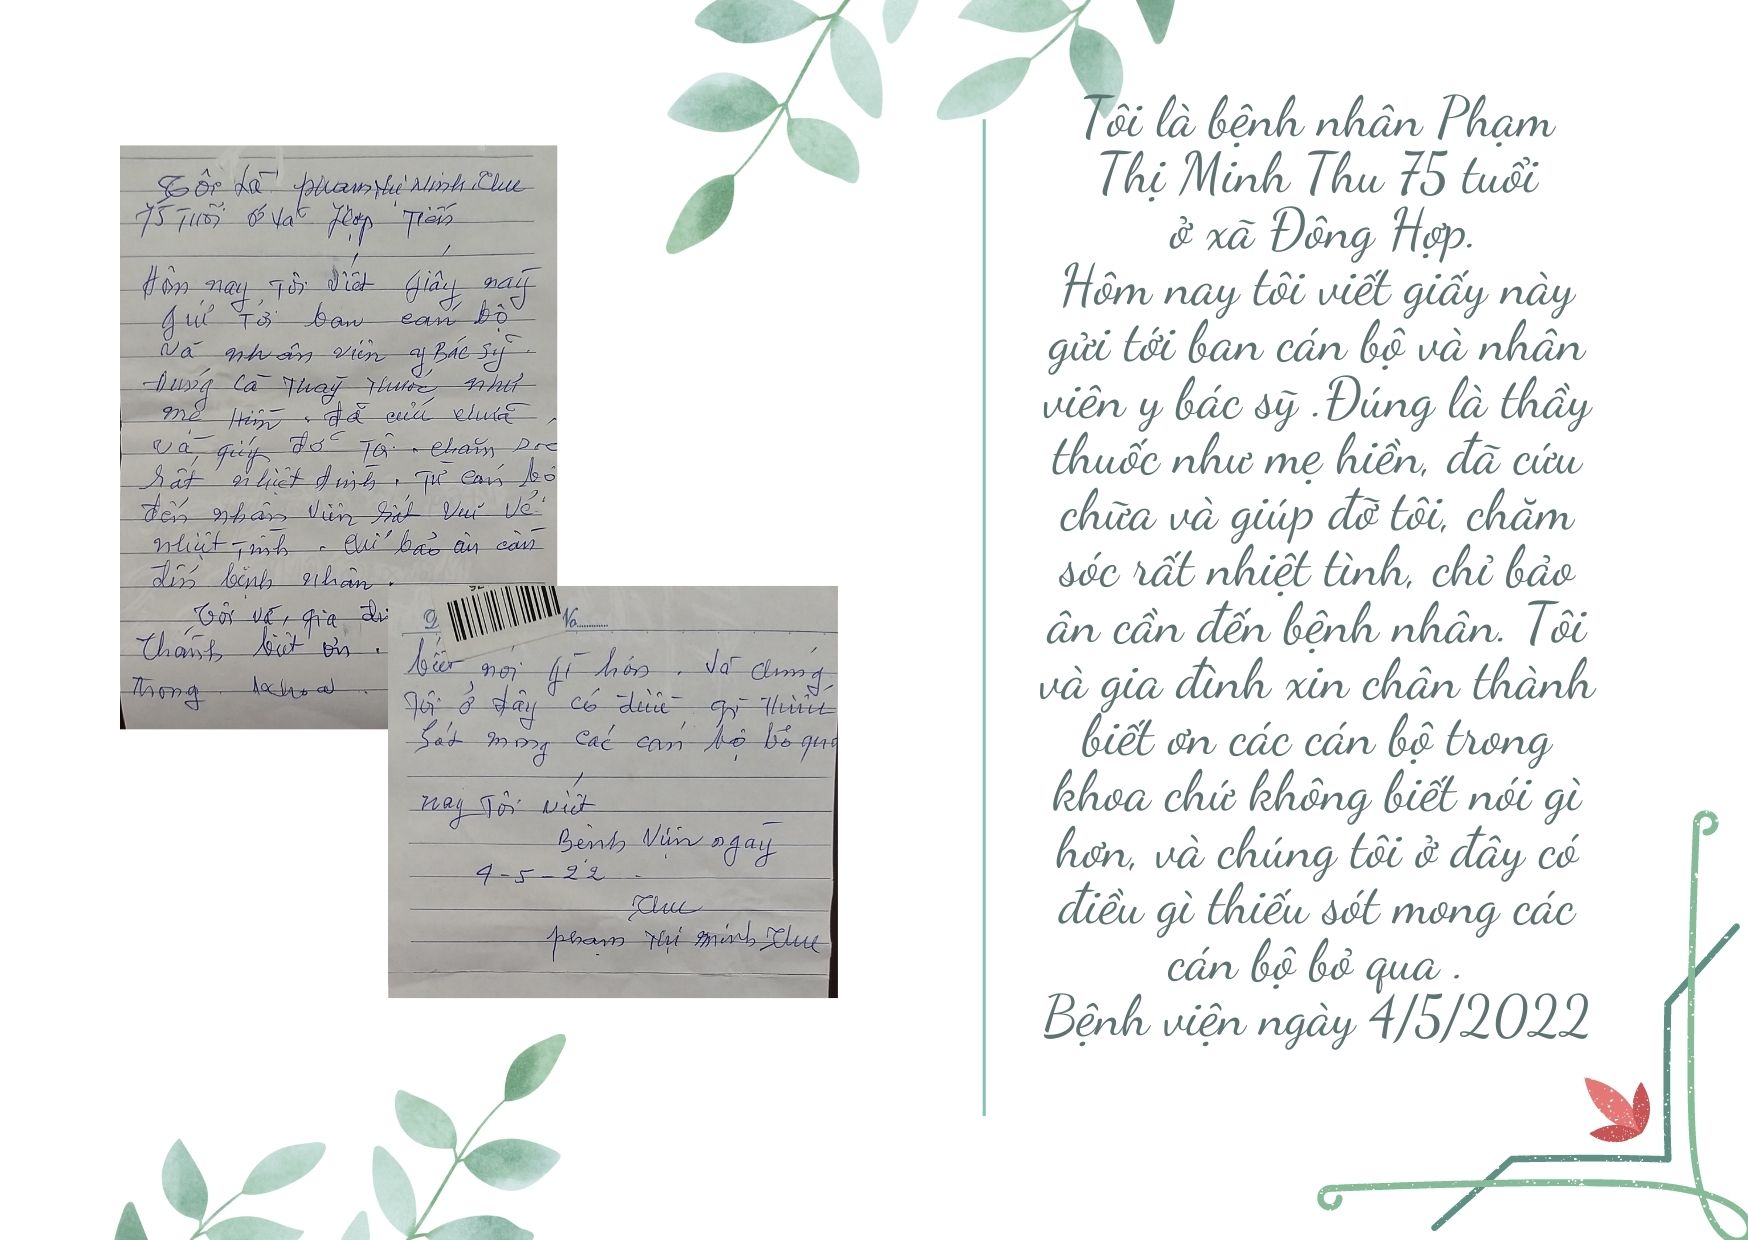 Tôi là phạm thị Minh Thu
75 Tuổi ở xã Hợp Tiến
Hôm nay Tôi viết giấy này
gửi Tới ban cán bộ
và nhân viên y Bác Sỹ.
đúng là Thầy Thuốc như
mẹ Hiền. đã cứu chữa
và giúp đỡ Tôi. chăm sóc
rất nhiệt tình. Từ cán bộ
đến nhân viên rất vui vẻ
nhiệt tình. chỉ bảo ân cần
đến bệnh nhân.
Tôi và gia đì
Thành biết ơn.
Trong khoa.
No
biết nói gì hơn. Và chúng
Tôi ở đây có điều gì Thiếu
Sót mong các cán bộ bỏ qua
nay Tôi viết
Bệnh Viện ngày
4-5-22
Thu
phạm Thị minh Thu
Tôi là bệnh nhân Phạm
Thị Minh Thu 75 tuổi
ở xã Đông Hợp.
Hôm nay tôi viết giấy này
gửi tới ban cán bộ và nhân
viên y bác sỹ .Đúng là thầy
thuốc như mẹ hiền, đã cứu
chữa và giúp đỡ tôi, chăm
sóc rất nhiệt tình, chỉ bảo
ân cần đến bệnh nhân. Tôi
và gia đình xin chân thành
biết ơn các cán bộ trong
khoa chứ không biết nói gì
hơn, và chúng tôi ở đây có
điều gì thiếu sót mong các
cán bộ bỏ qua .
Bệnh viện ngày 4/5/2022